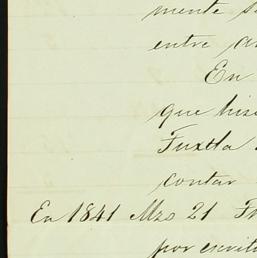 mente se
entre a
En
que his
Tuxtla
contar
En 1841 Mzo 21 F
por escrit